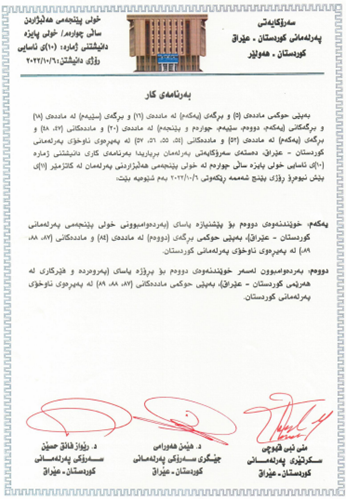 سەرۆکایەتی
پەرلەمانی کوردستان - عێراق
کوردستان - هەولێر
خولی پێنجەمی هەڵبژاردن
ساڵی چوارەم، خولی پایزە
دانیشتنی ژمارە: (١٠)ی ئاسایی
ڕۆژی دانیشتن: ٢٠٢٢/١٠/٦
بەرنامەی کار
بەپێی حوکمی ماددەی (٥) و بڕگەی (یەکەم) لە ماددەی (١٦) و بڕگەی (سێیەم) لە ماددەی (١٨)
و بڕگەکانی (یەکەم، دووەم، سێیەم، چوارەم و پێنجەم) لە ماددەی (٢٠) و ماددەکانی (٤٧، ٤٨) و
بڕگەی (یەکەم) لە ماددەی (٥٢) و ماددەکانی (٥٤، ٥٥، ٥٦، ٥٧) لە پەیڕەوی ناوخۆی پەرلەمانی
کوردستان - عێراق، دەستەی سەرۆکایەتی پەرلەمان بڕیاریدا بەرنامەی کاری دانیشتنی ژمارە
(١٠)ی ئاسایی خولی پایزە ساڵی چوارەم لە خولی پێنجەمی هەڵبژاردنی پەرلەمان لە کاتژمێر (١١)ی
پێش نیوەڕۆ ڕۆژی پێنج شەممە ڕێکەوتی ٢٠٢٢/١٠/٦ بەم شێوەیە بێت:
یەکەم: خوێندنەوەی دووەم بۆ پێشنیازە یاسای (بەردەوامبوونی خولی پێنجەمی پەرلەمانی
کوردستان - عێراق)، بەپێی حوکمی بڕگەی (دووەم) لە ماددەی (٨٤) و ماددەکانی (٨٧، ٨٨،
٨٩) لە پەیڕەوی ناوخۆی پەرلەمانی کوردستان.
دووەم: بەردەوامبوون لەسەر خوێندنەوەی دووەم بۆ پڕۆژە یاسای (پەروەردە و فێرکاری لە
هەرێمی کوردستان - عێراق)، بەپێی حوکمی ماددەکانی (٨٧، ٨٨، ٨٩) لە پەیڕەوی ناوخۆی
پەرلەمانی کوردستان.
د. ڕێواز فائق حسێن
سەرۆکی پەرلەمانی
کوردستان - عێراق
د. هێمن هەورامی
جێگری سەرۆکی پەرلەمانی
کوردستان - عێراق
منی نبی قهوچی
سکرتێری پەرلەمانی
کوردستان - عێراق